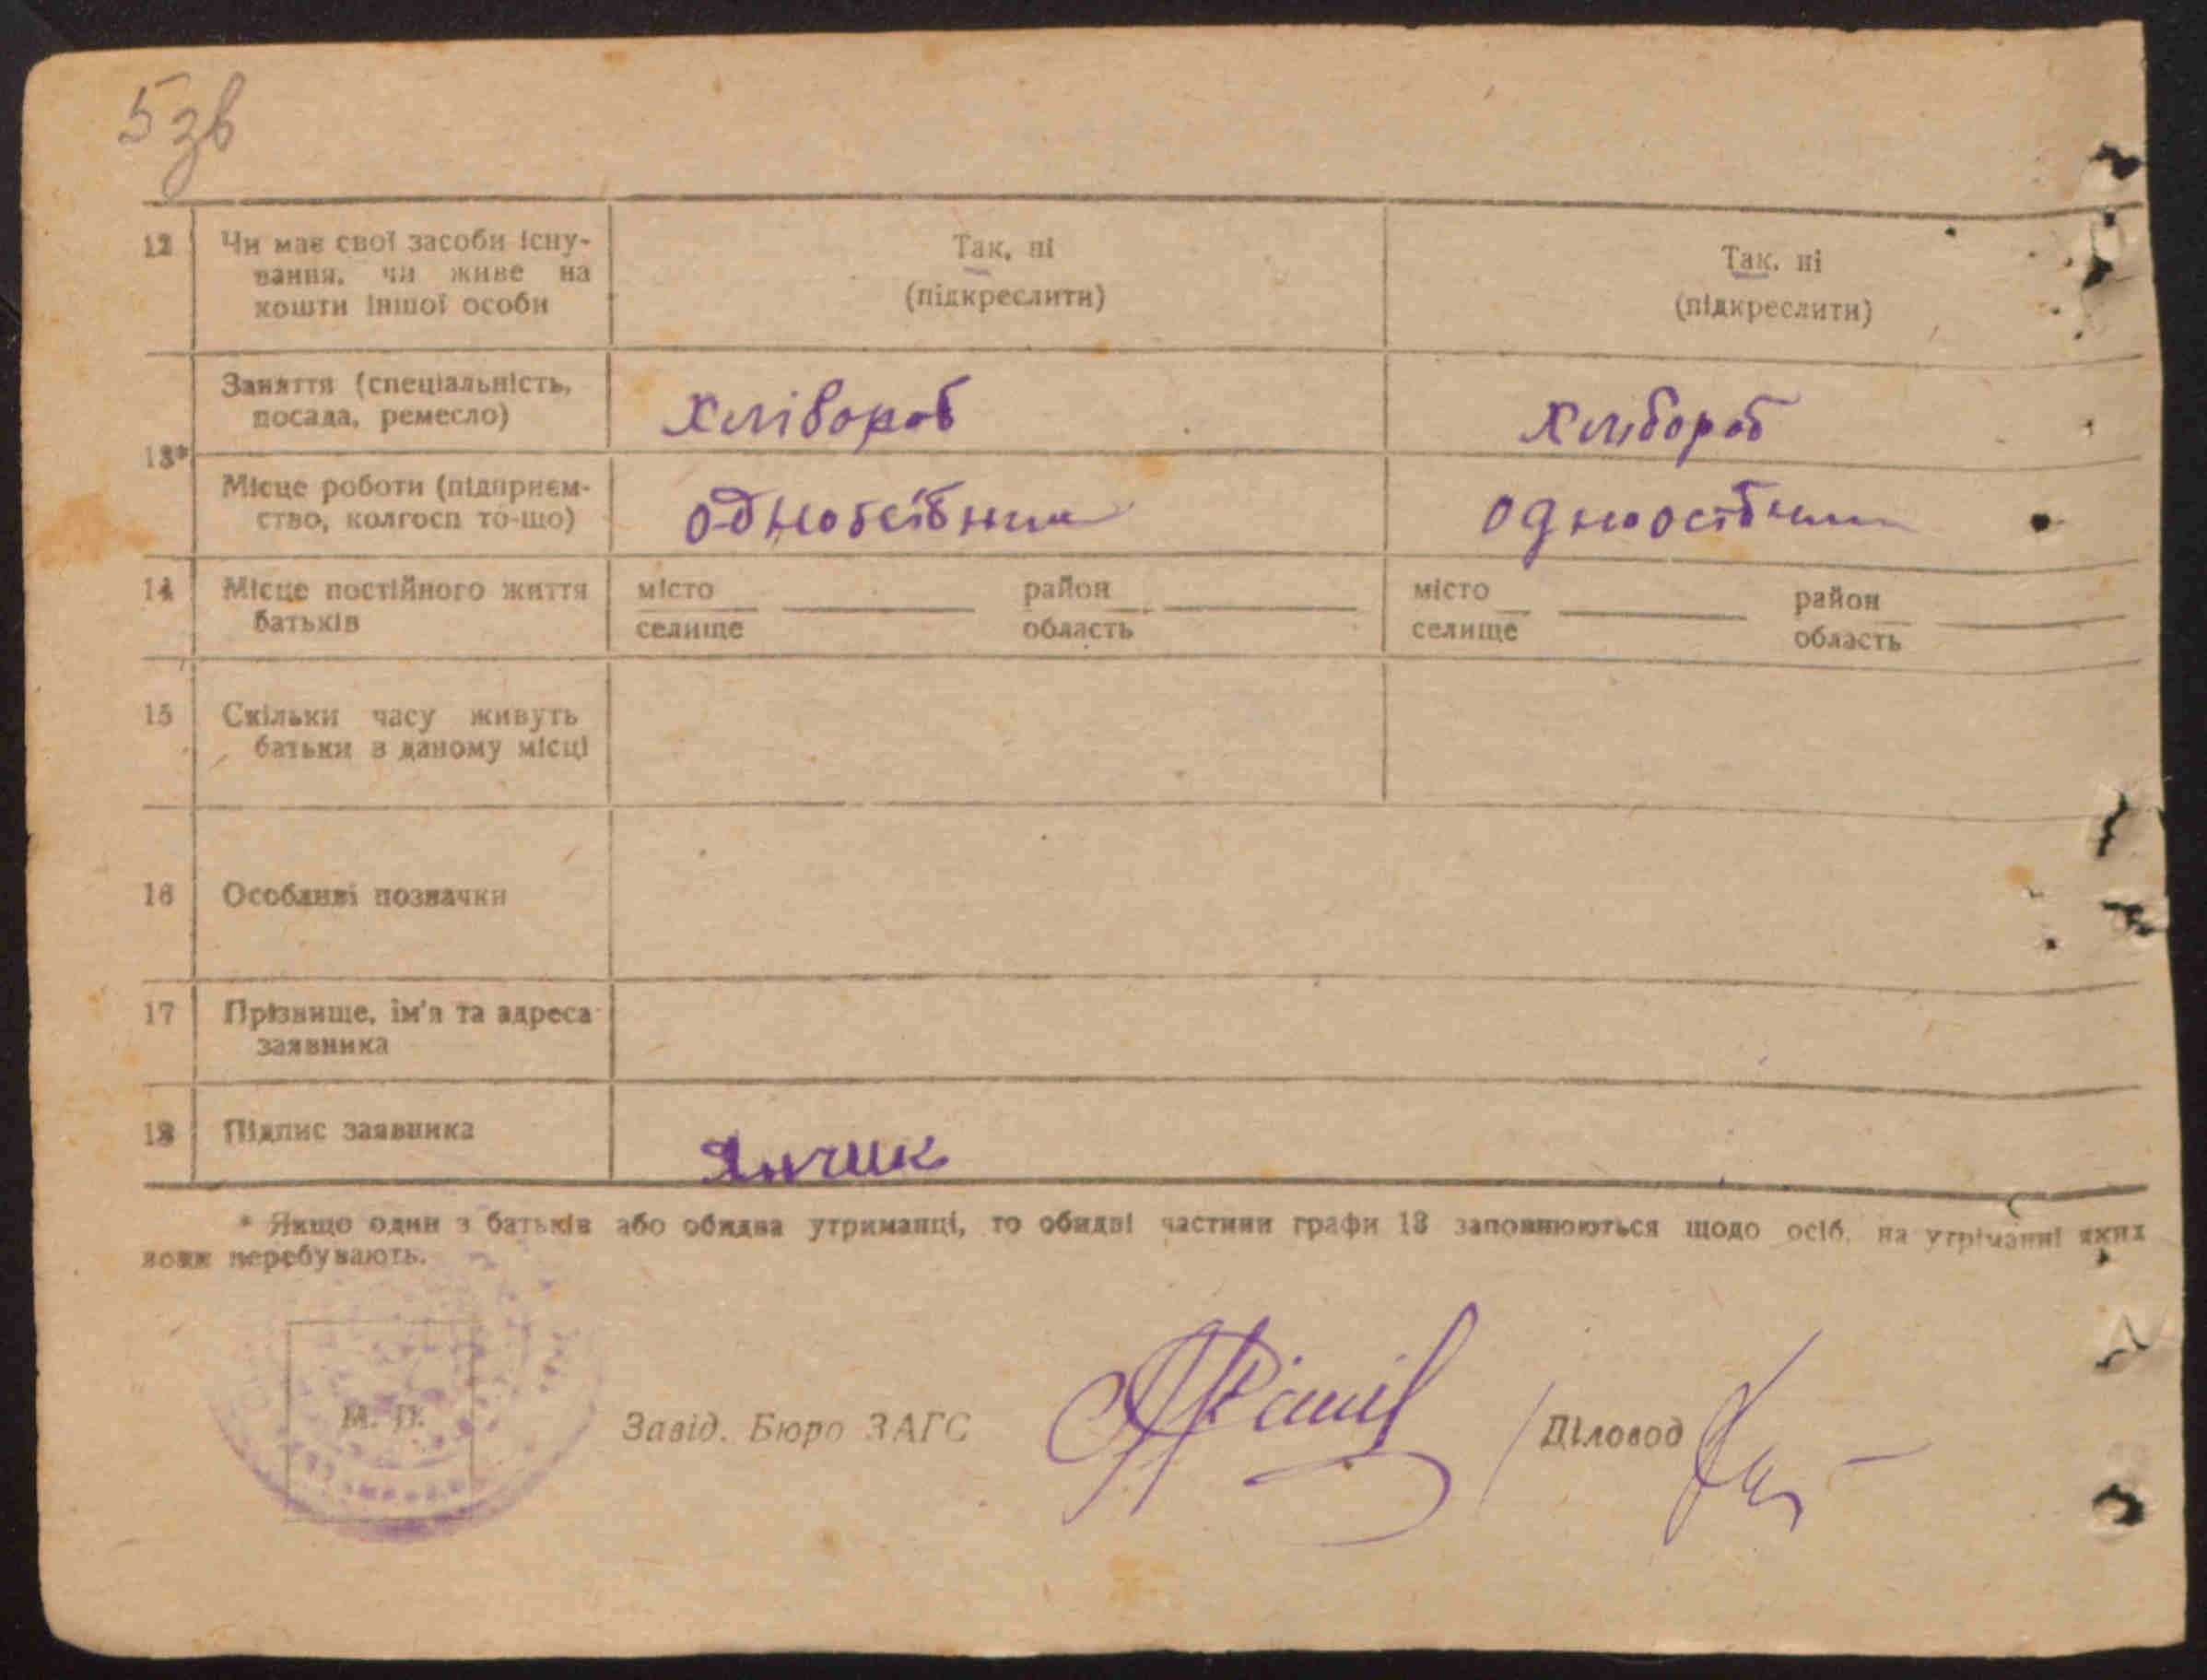 5 зв
12 Чи має свої засоби існу- Так, ні Так, ні
вання, чи живе на (підкреслити) (підкреслити)
кошти іншої особи
Заняття (спеціальність, хлівороб хлібороб
посада, ремесло)
13*
Місце роботи (підприєм- одноосібник одноосібник
ство, колгосп то-що)
14 Місце постійного життя місто район місто район
батьків селище область селище область
15 Скільки часу живуть
батьки в даному місці
16 Особливі позначки
17 Прізвище, ім'я та адреса
заявника
18 Підпис заявника Янчик
* Якщо один з батьків або обидва утриманці, то обидві частини графи 13 заповнюються щодо осіб, на утріманні яких
вони перебувають.
М. П. Завід. Бюро ЗАГС Діловод